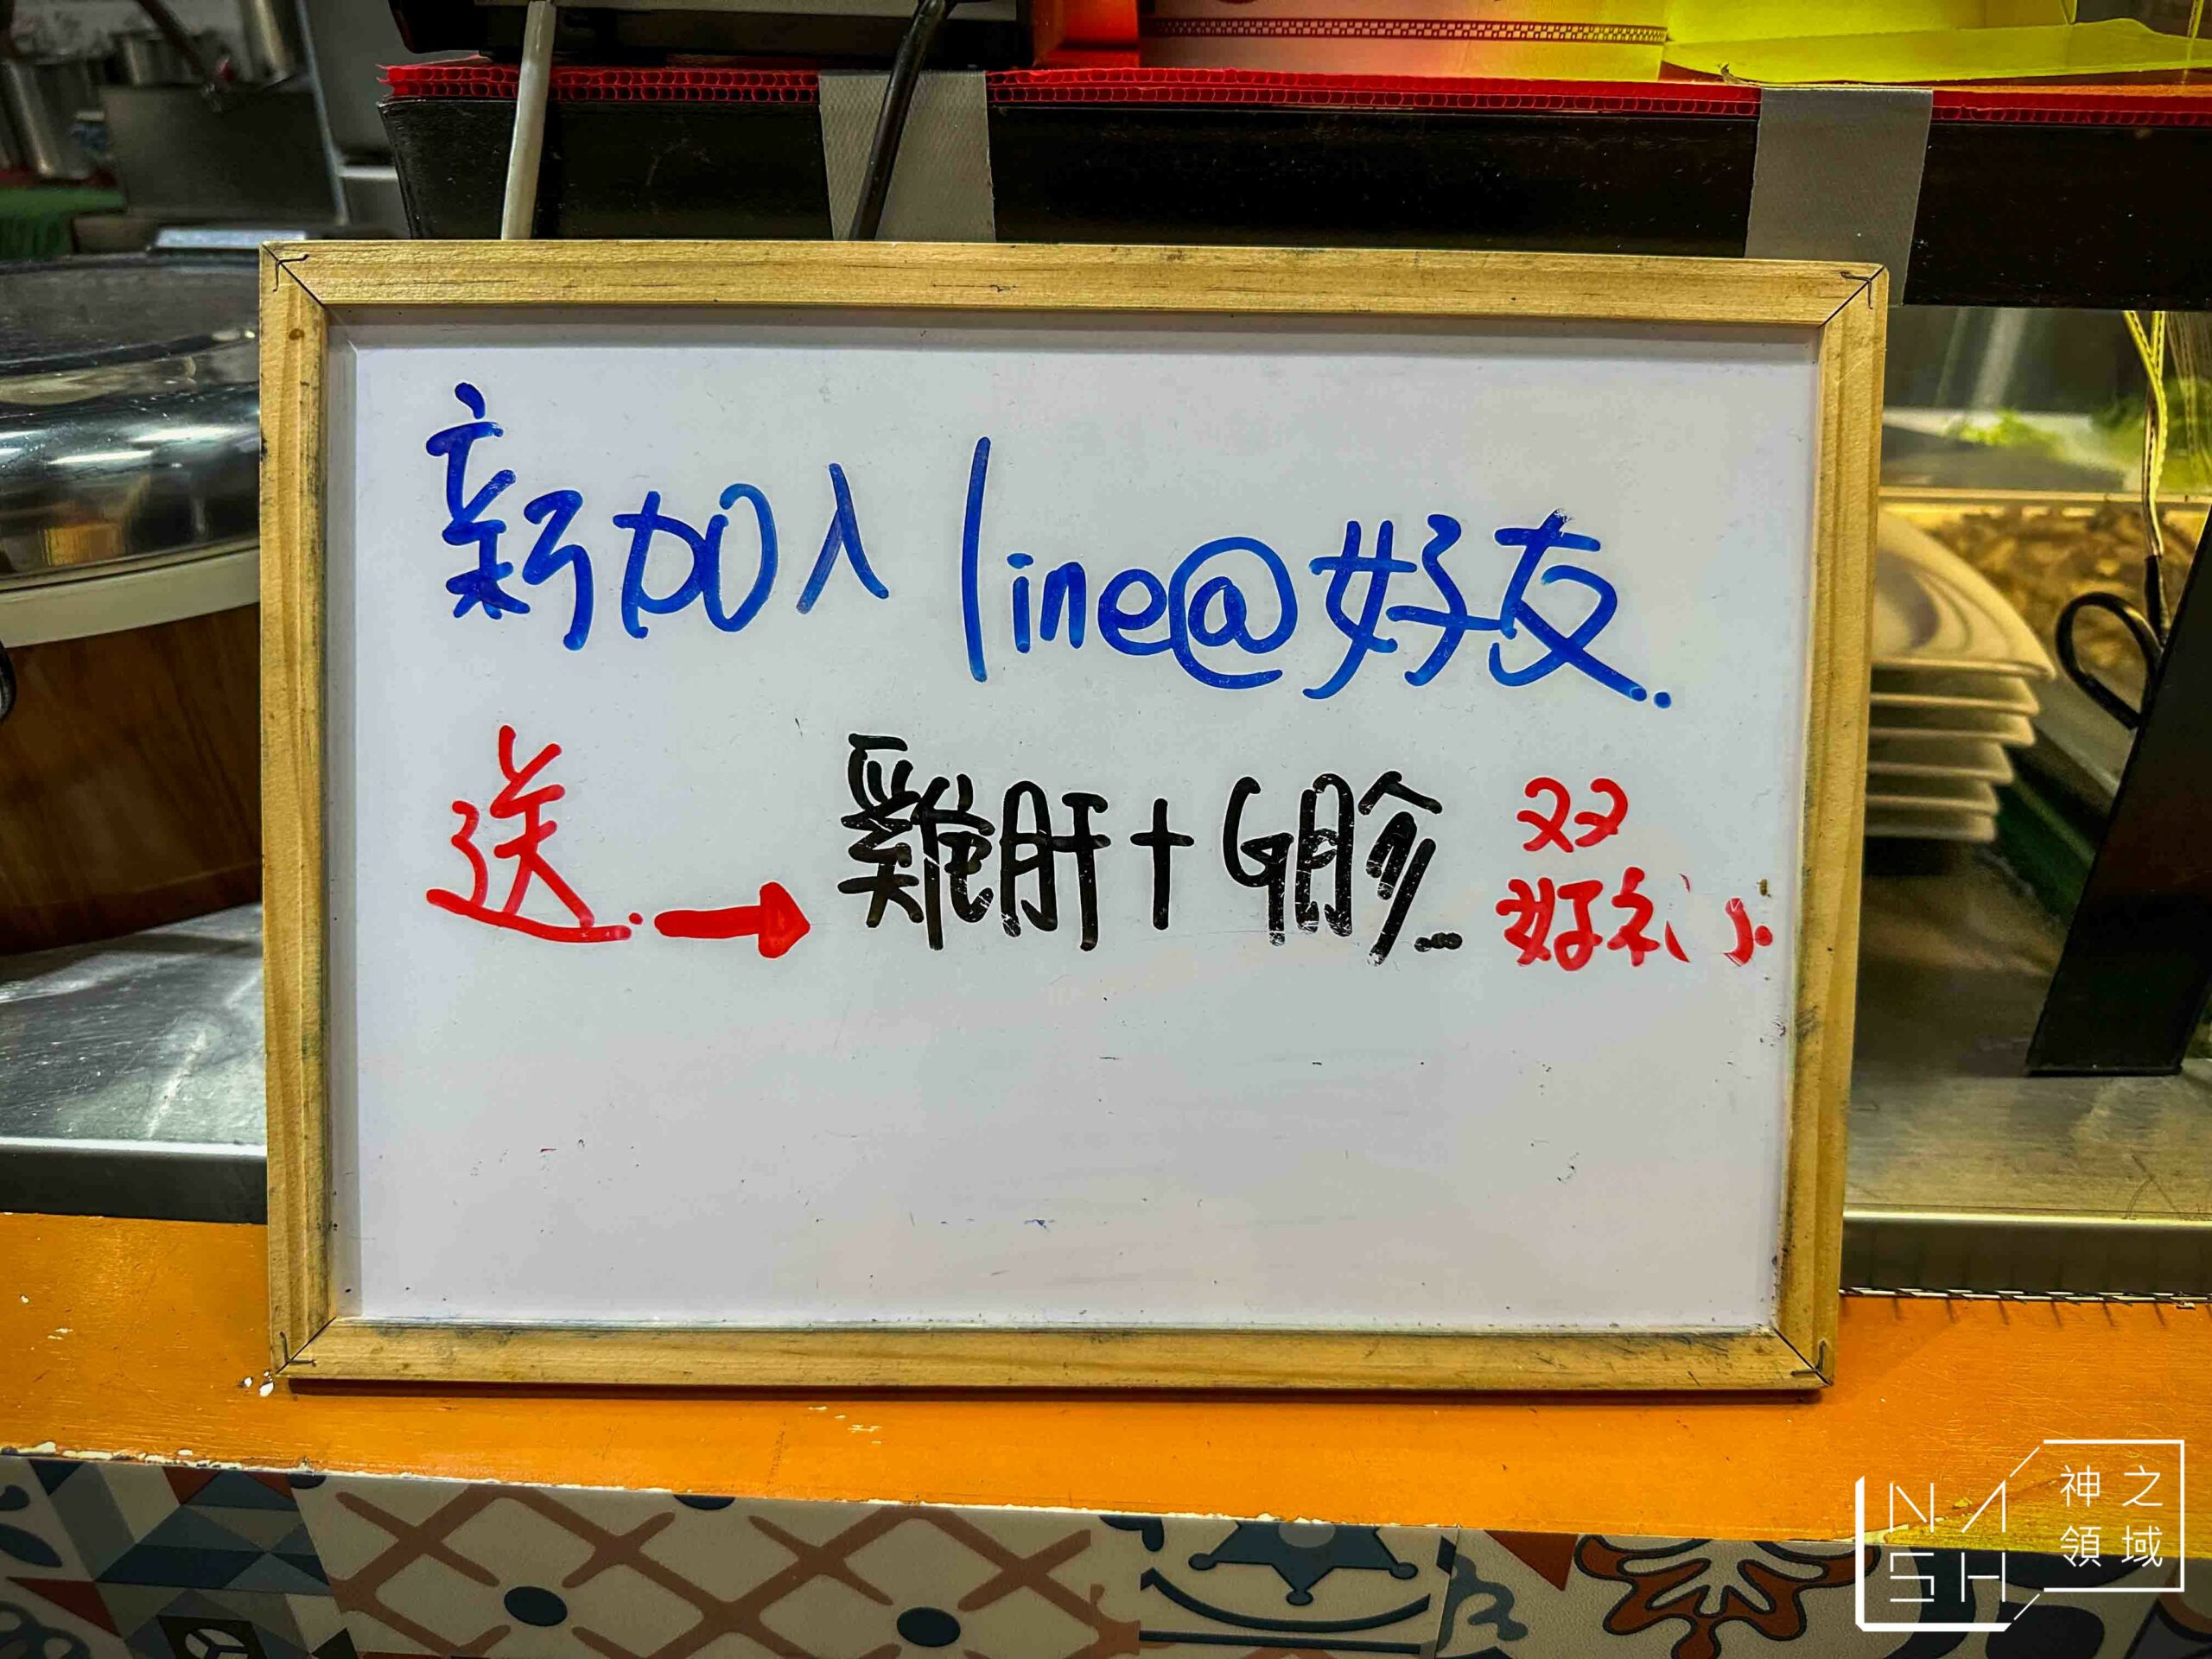 新加入 line@好友.
送. → 雞肝+G胗... 双
好礼
NASH 神之
領域